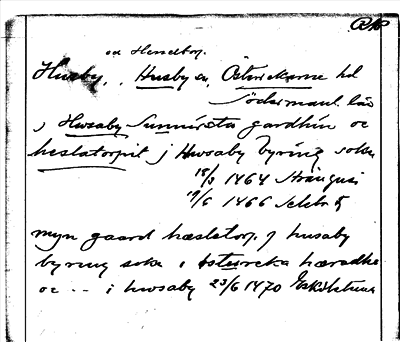 Husby, Husby a, Österrekarne hd
Södermanl. län
j Hwsaby Sunnirsta gardhin oc
heslatorpit j Hwsaby byring sokn
18/3 1464 Strängnäs
19/6 1466
myn gaard hæslatorp j husaby
byring sokn i østurreka hæradhe
oc -- i hwsaby 23/6 1470 Eskilstuna